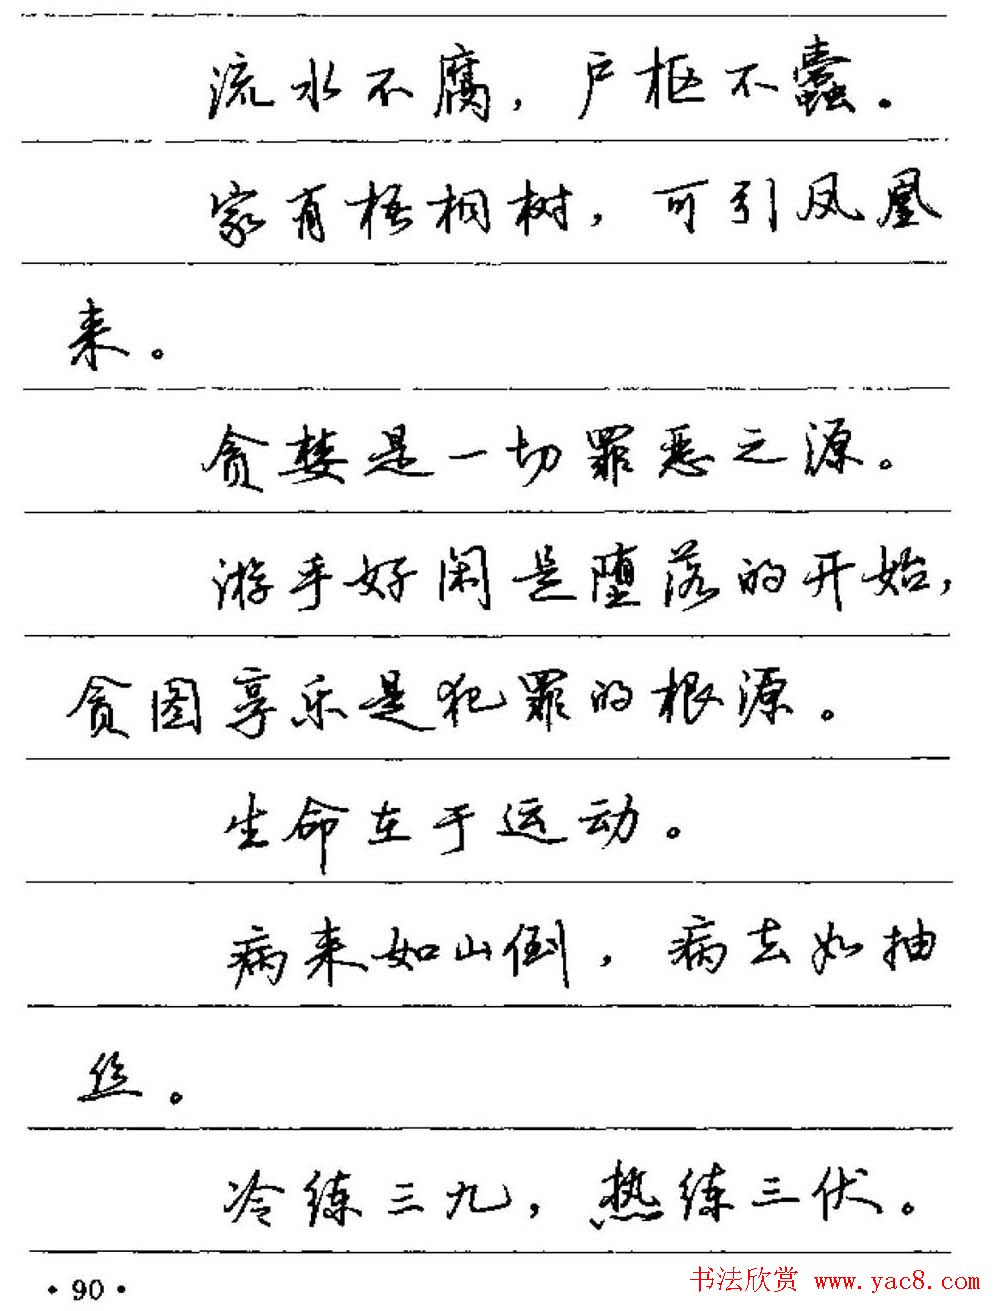 流水不腐，户枢不蠹。
家有梧桐树，可引凤凰
来。
贪婪是一切罪恶之源。
游手好闲是堕落的开始，
贪图享乐是犯罪的根源。
生命在于运动。
病来如山倒，病去如抽
丝。
冷练三九，热练三伏。
·90·
书法欣赏 www.yac8.com